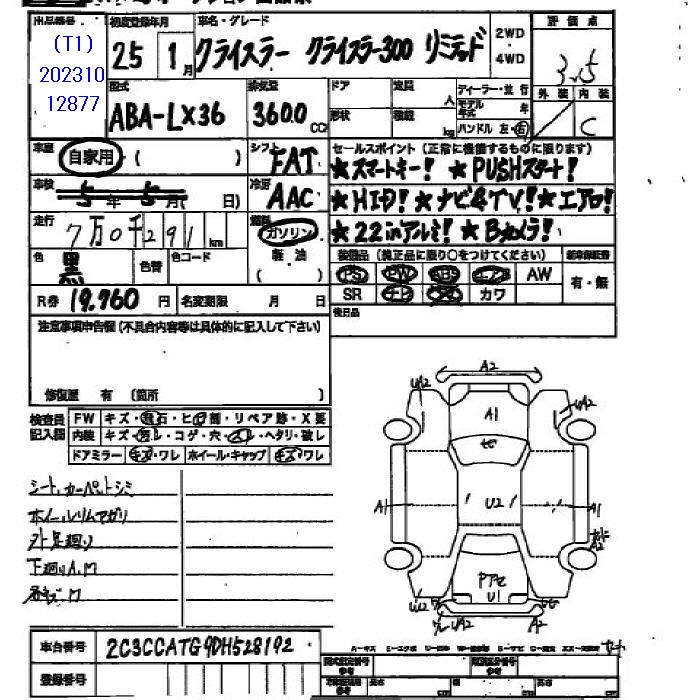 出品番号 初度登録年月 車名・グレード 評価点
(T1) 25 1月 クライスラー クライスラー300 リミテッド 2WD・4WD 3.5
202310
12877
型式 排気量 ドア 定員 人 ディーラー・並行 外装 内装
ABA-LX36 3600 CC 形状 積載 kg モデル年式 年 ハンドル 左・右 C
車歴 自家用・( ) シフト FAT セールスポイント (正常に機能するものに限ります)
★スマートキー! ★PUSHスタート!
車検 5年 5月( 日) 冷房 AAC ★HID! ★ナビ&TV! ★エアロ!
走行 7万0千291km 燃料 ガソリン・軽油 ( ) ★22inアルミ! ★Bカメラ!
色 黒 色替 色コード 装備品 (純正品に限り○をつけてください) 新車保証書
PS PW ABS エアB AW 有・無
SR ナビ カワ
R券 19,760円 名変期限 月 日 後日品
注意事項申告欄 (不具合内容等は具体的に記入して下さい)
修復歴 有 (箇所 )
検査員記入欄 FW キズ・飛石・ヒビ割・リペア跡・X要
内装 キズ・汚レ・コゲ・穴・スレ・ヘタリ・破レ
ドアミラー キズ・ワレ ホイール・キャップ キズ・ワレ
シート、カーペットシミ
ホイールリムマガリ
外足廻り
下廻りA,M
各キズM
A2
UA2
A1
UA2
A1
U2
A1
A2
U1
UA2
A2
車台番号 2C3CCATG9DH528192
登録番号